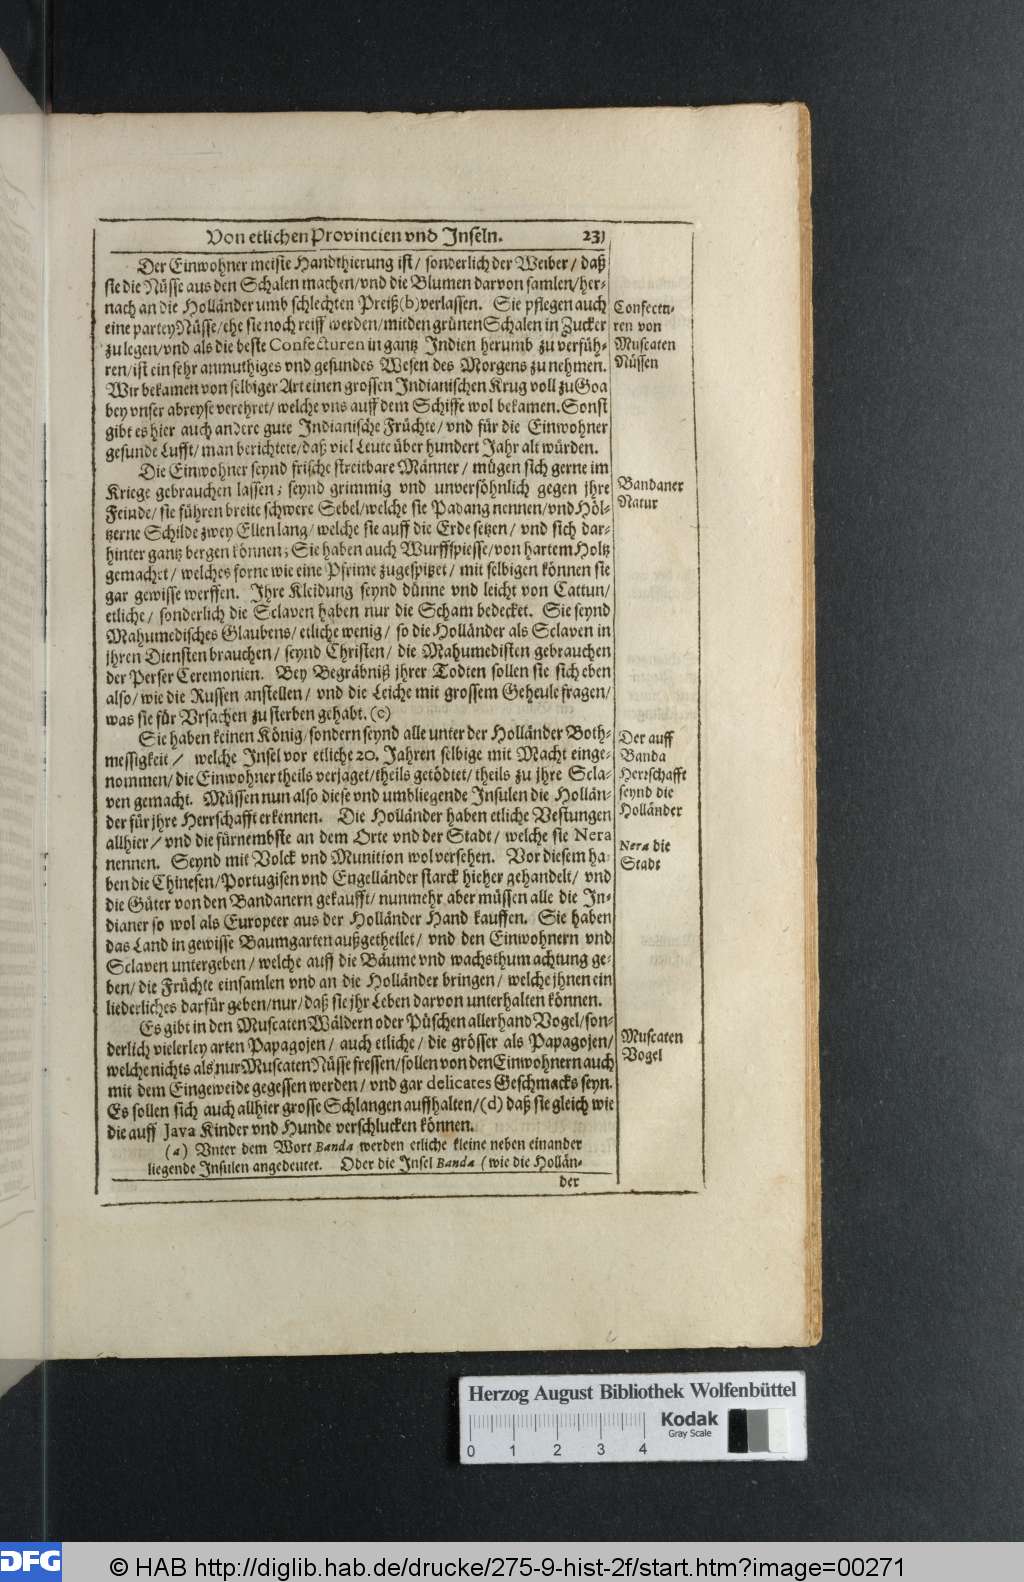 Von etlichen Provincien vnd Inseln. 231
Der Einwohner meiste Handthierung ist / sonderlich der Weiber / daß
sie die Nüsse aus den Schalen machen / vnd die Blumen darvon samlen / her-
nach an die Holländer umb schlechten Preiß (b) verlassen. Sie pflegen auch
eine partey Nüsse / ehe sie noch reiff werden / mit den grünen Schalen in Zucker
zu legen / vnd als die beste Confecturen in gantz Indien herumb zu verfüh-
ren / ist ein sehr anmuthiges vnd gesundes Wesen des Morgens zu nehmen.
Wir bekamen von selbiger Art einen grossen Indianischen Krug voll zu Goa
bey vnser abreyse verehret / welche vns auff dem Schiffe wol bekamen. Sonst
gibt es hier auch andere gute Indianische Früchte / vnd für die Einwohner
gesunde Lufft / man berichtete / daß viel Leute über hundert Jahr alt würden.
Confectu-
ren von
Muscaten
Nüssen
Die Einwohner seynd frische streitbare Männer / mügen sich gerne im
Kriege gebrauchen lassen; seynd grimmig vnd unversöhnlich gegen jhre
Feinde / sie führen breite schwere Sebel / welche sie Padang nennen / vnd Höl-
tzerne Schilde zwey Ellen lang / welche sie auff die Erde setzen / vnd sich dar-
hinter gantz bergen können; Sie haben auch Wurffspiesse / von hartem Holtz
gemachet / welches forne wie eine Pfrime zugespitzet / mit selbigen können sie
gar gewisse werffen. Ihre Kleidung seynd dünne vnd leicht von Cattun /
etliche / sonderlich die Sclaven haben nur die Scham bedecket. Sie seynd
Mahumedisches Glaubens / etliche wenig / so die Holländer als Sclaven in
jhren Diensten brauchen / seynd Christen / die Mahumedisten gebrauchen
der Perser Ceremonien. Bey Begräbniß jhrer Todten sollen sie sich eben
also / wie die Russen anstellen / vnd die Leiche mit grossem Geheule fragen /
was sie für Vrsachen zu sterben gehabt. (c)
Bandaner
Natur
Sie haben keinen König / sondern seynd alle unter der Holländer Both-
messigkeit / welche Insel vor etliche 20. Jahren selbige mit Macht einge-
nommen / die Einwohner theils verjaget / theils getödtet / theils zu jhre Scla-
ven gemacht. Müssen nun also diese vnd umbliegende Insulen die Hollän-
der für jhre Herrschafft erkennen. Die Holländer haben etliche Vestungen
allhier / vnd die fürnembste an dem Orte vnd der Stadt / welche sie Nera
nennen. Seynd mit Volck vnd Munition wol versehen. Vor diesem ha-
ben die Chinesen / Portugisen vnd Engelländer starck hieher gehandelt / vnd
die Güter von den Bandanern gekaufft / nunmehr aber müssen alle die In-
dianer so wol als Europeer aus der Holländer Hand kauffen. Sie haben
das Land in gewisse Baumgarten außgetheilet / vnd den Einwohnern vnd
Sclaven untergeben / welche auff die Bäume vnd wachsthum achtung ge-
ben / die Früchte einsamlen vnd an die Holländer bringen / welche jhnen ein
liederliches darfür geben / nur / daß sie jhr Leben darvon unterhalten können.
Der auff
Banda
Herrschaffe
seynd die
Holländer
Nera die
Stadt
Es gibt in den Muscaten Wäldern oder Püschen allerhand Vogel / son-
derlich vielerley arten Papagojen / auch etliche / die grösser als Papagojen /
welche nichts als nur Muscaten Nüsse fressen / sollen von den Einwohnern auch
mit dem Eingeweide gegessen werden / vnd gar delicates Geschmacks seyn.
Es sollen sich auch allhier grosse Schlangen auffhalten / (d) daß sie gleich wie
die auff Java Kinder vnd Hunde verschlucken können.
Muscaten
Vogel
(a) Vnter dem Wort Banda werden etliche kleine neben einander
liegende Insulen angedeutet. Oder die Insel Banda (wie die Hollän-
der
Herzog August Bibliothek Wolfenbüttel
Kodak
Gray Scale
0 1 2 3 4
DFG © HAB http://diglib.hab.de/drucke/275-9-hist-2f/start.htm?image=00271